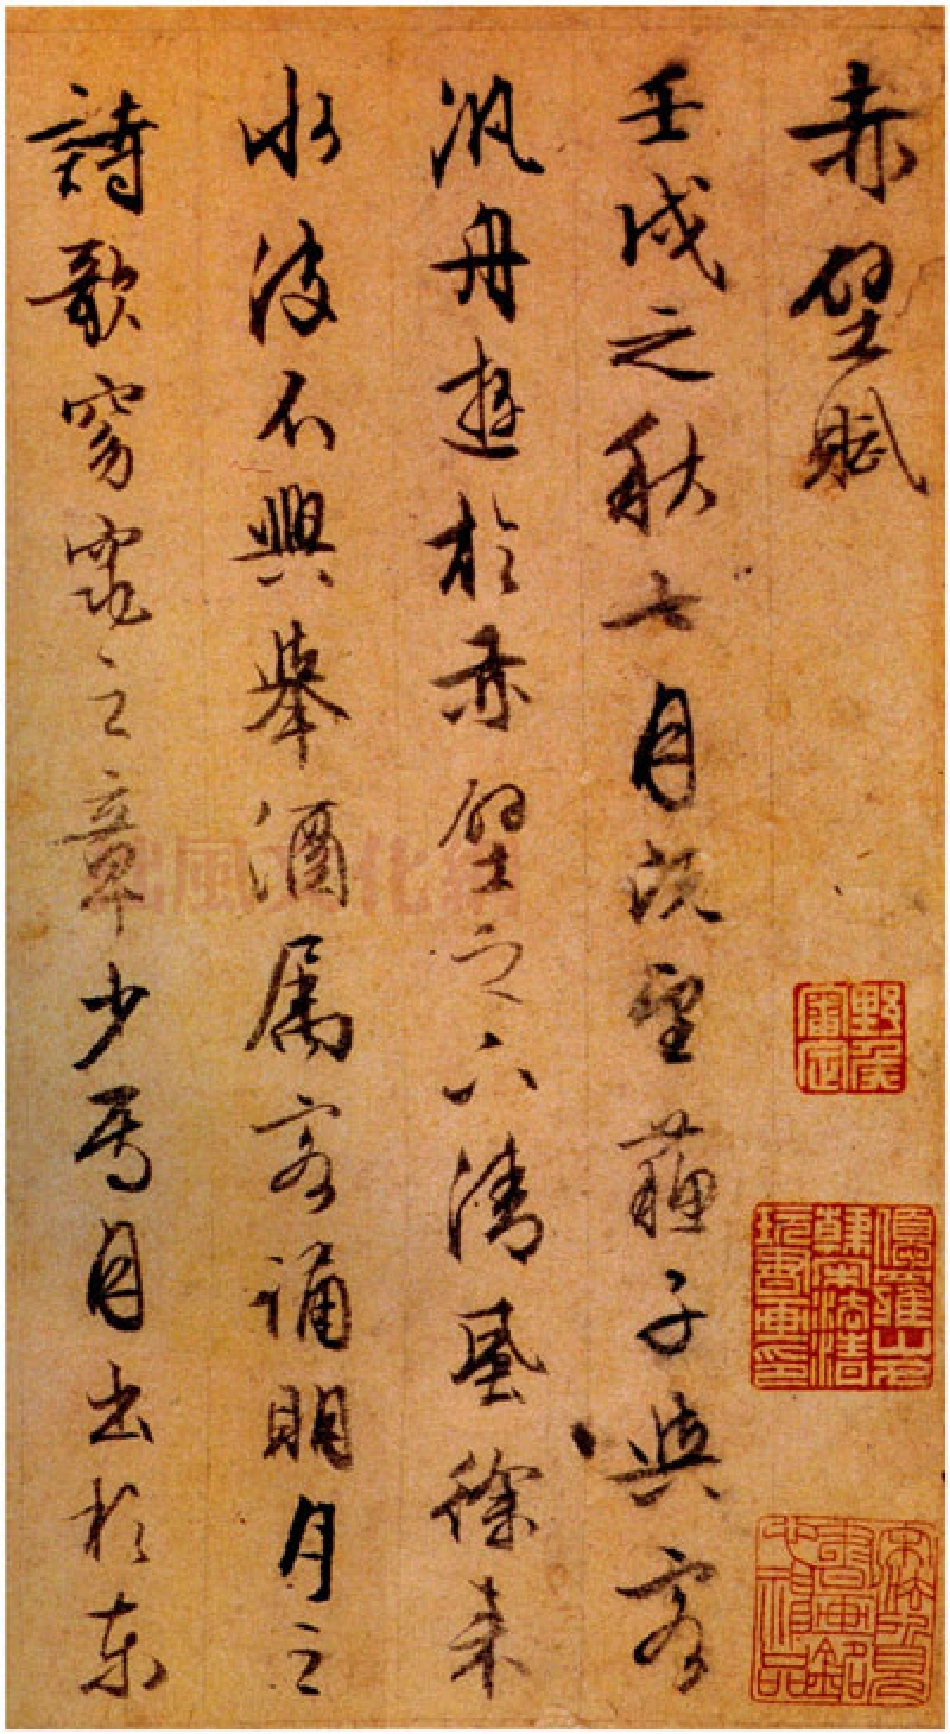 赤壁賦
壬戌之秋七月既望蘇子與客
汎舟遊於赤壁之下清風徐来
水波不興舉酒属客誦明月之
詩歌窈窕之章少焉月出於东